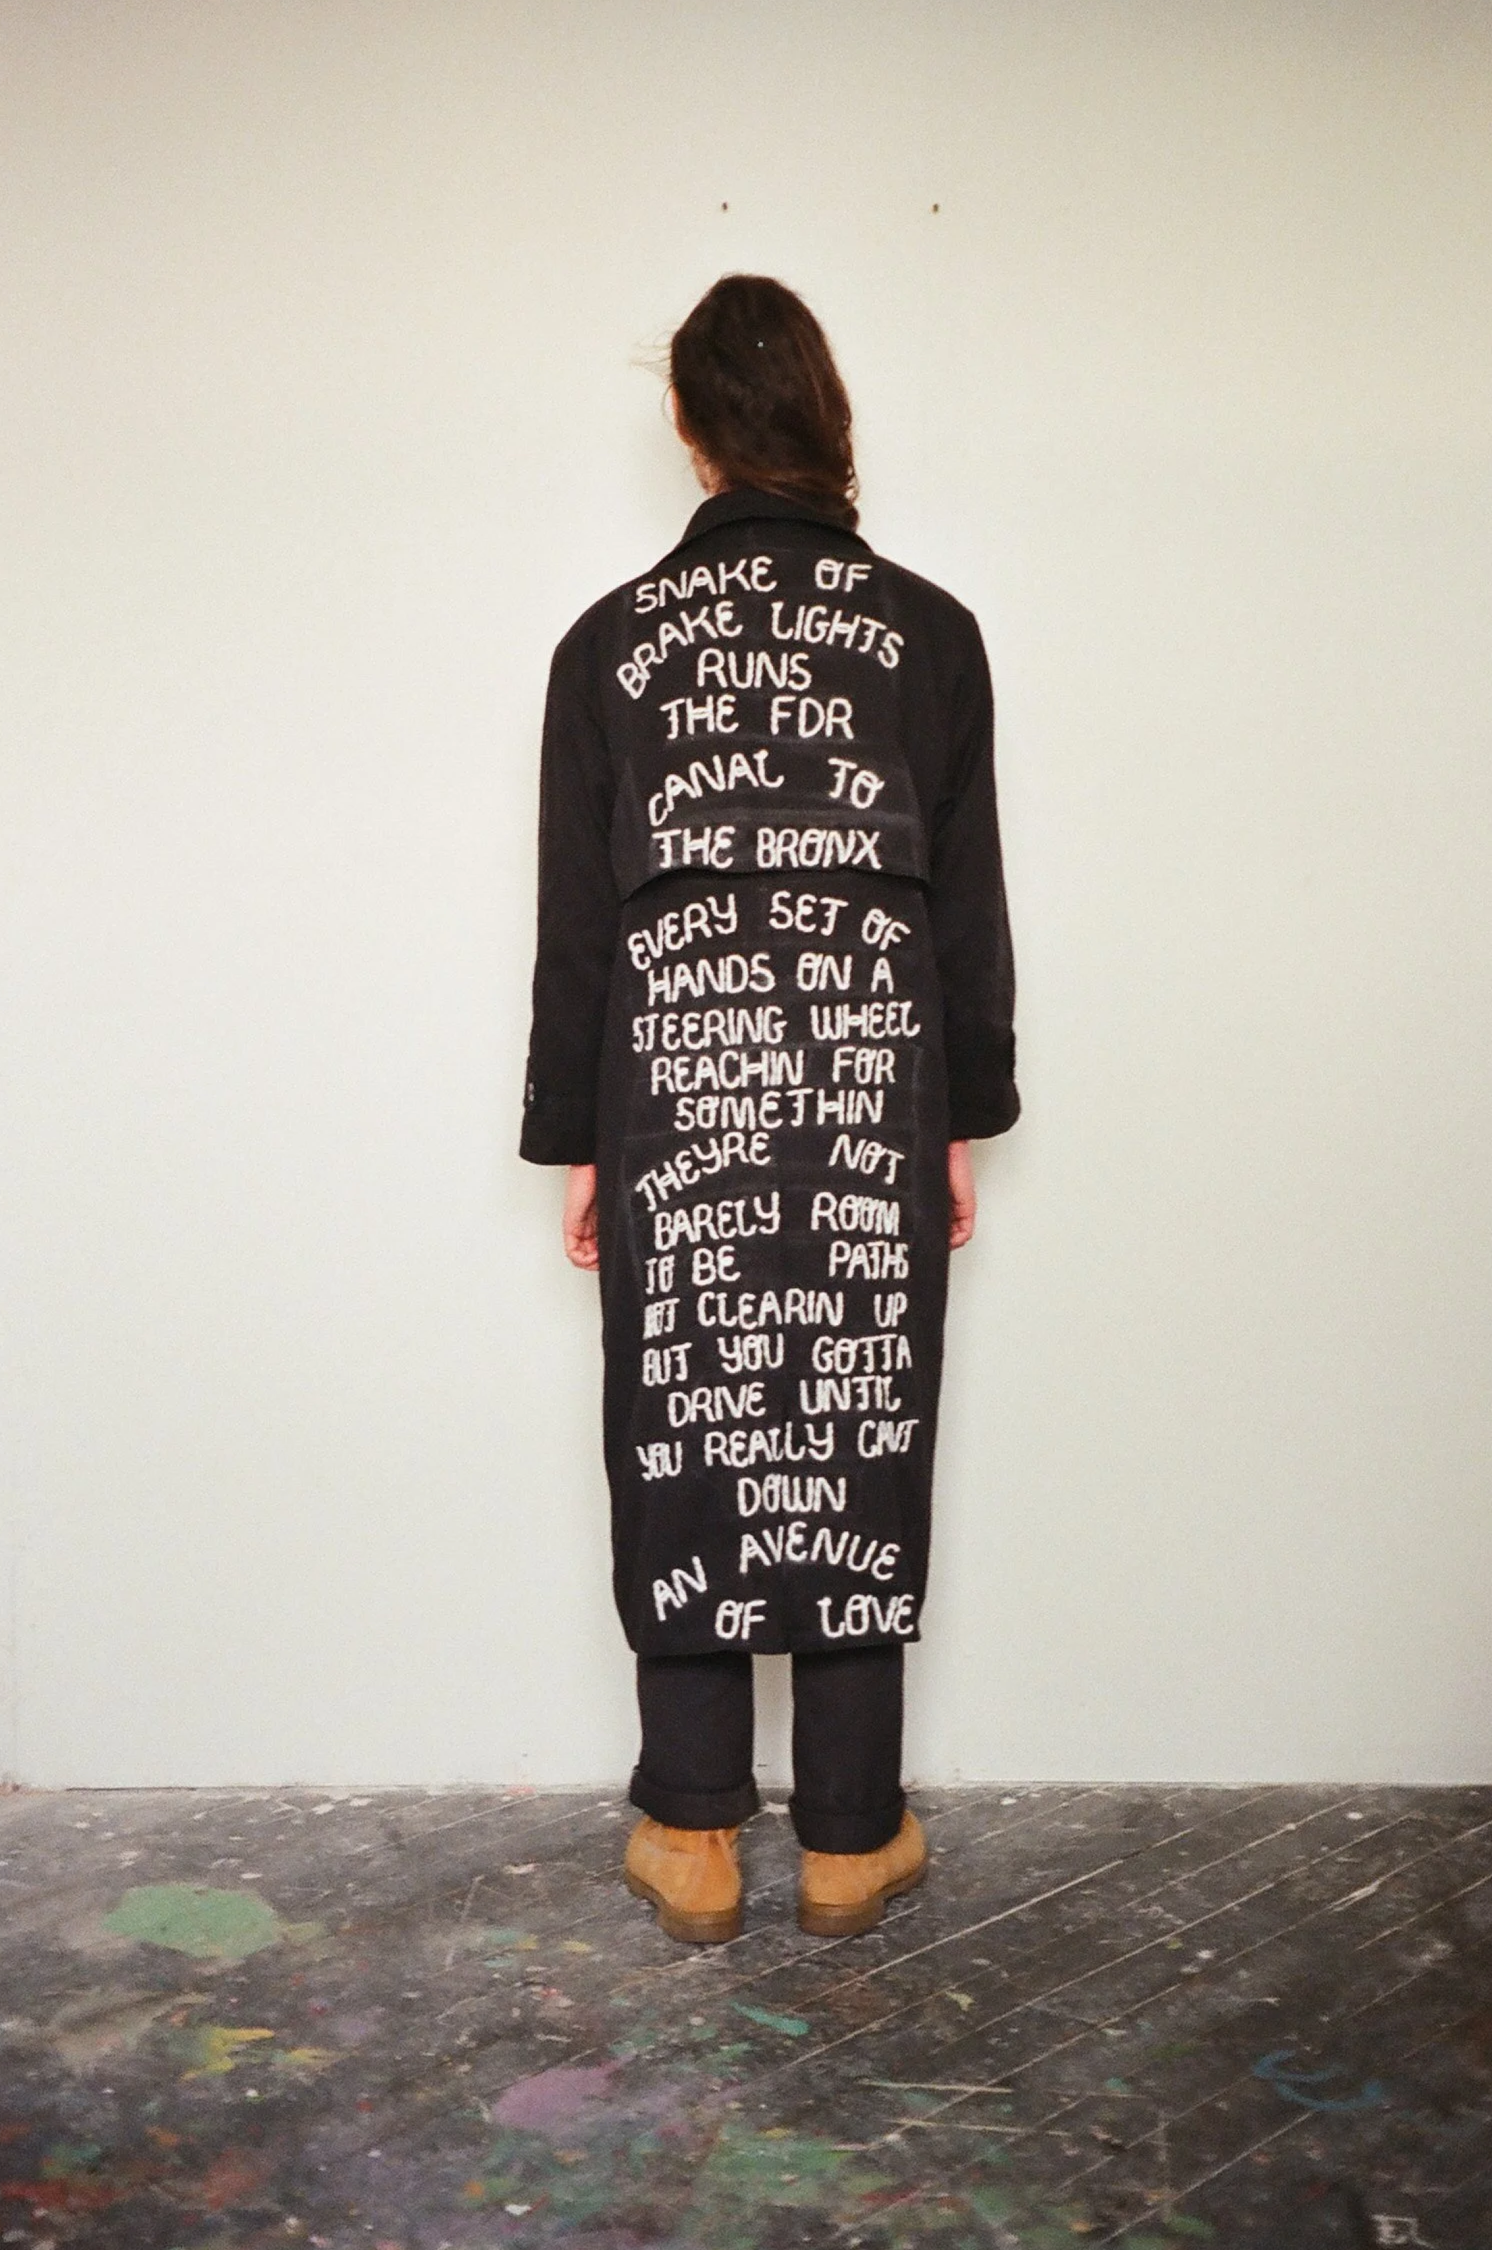 SNAKE OF
BRAKE LIGHTS
RUNS
THE FDR
CANAL TO
THE BRONX
EVERY SET OF
HANDS ON A
STEERING WHEEL
REACHIN FOR
SOMETHIN
THEYRE NOT
BARELY ROOM
TO BE PATHS
NOT CLEARIN UP
BUT YOU GOTTA
DRIVE UNTIL
YOU REALLY CANT
DOWN
AN AVENUE
OF LOVE